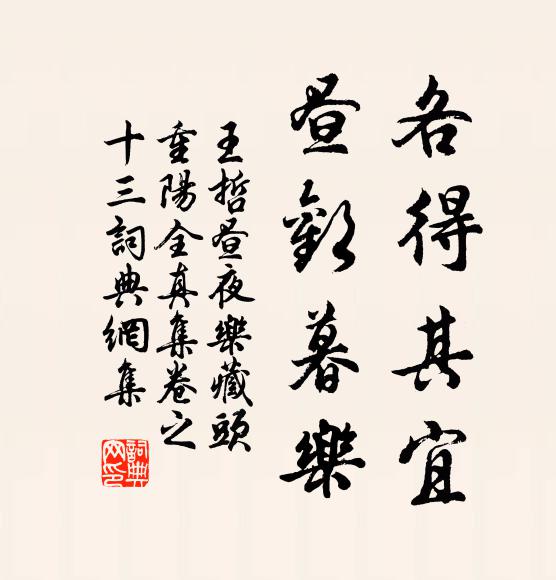 各得其宜
昼歡暮樂
王哲昼夜樂藏頭
重陽全真集卷之
十三詞典網集
詞典
网印